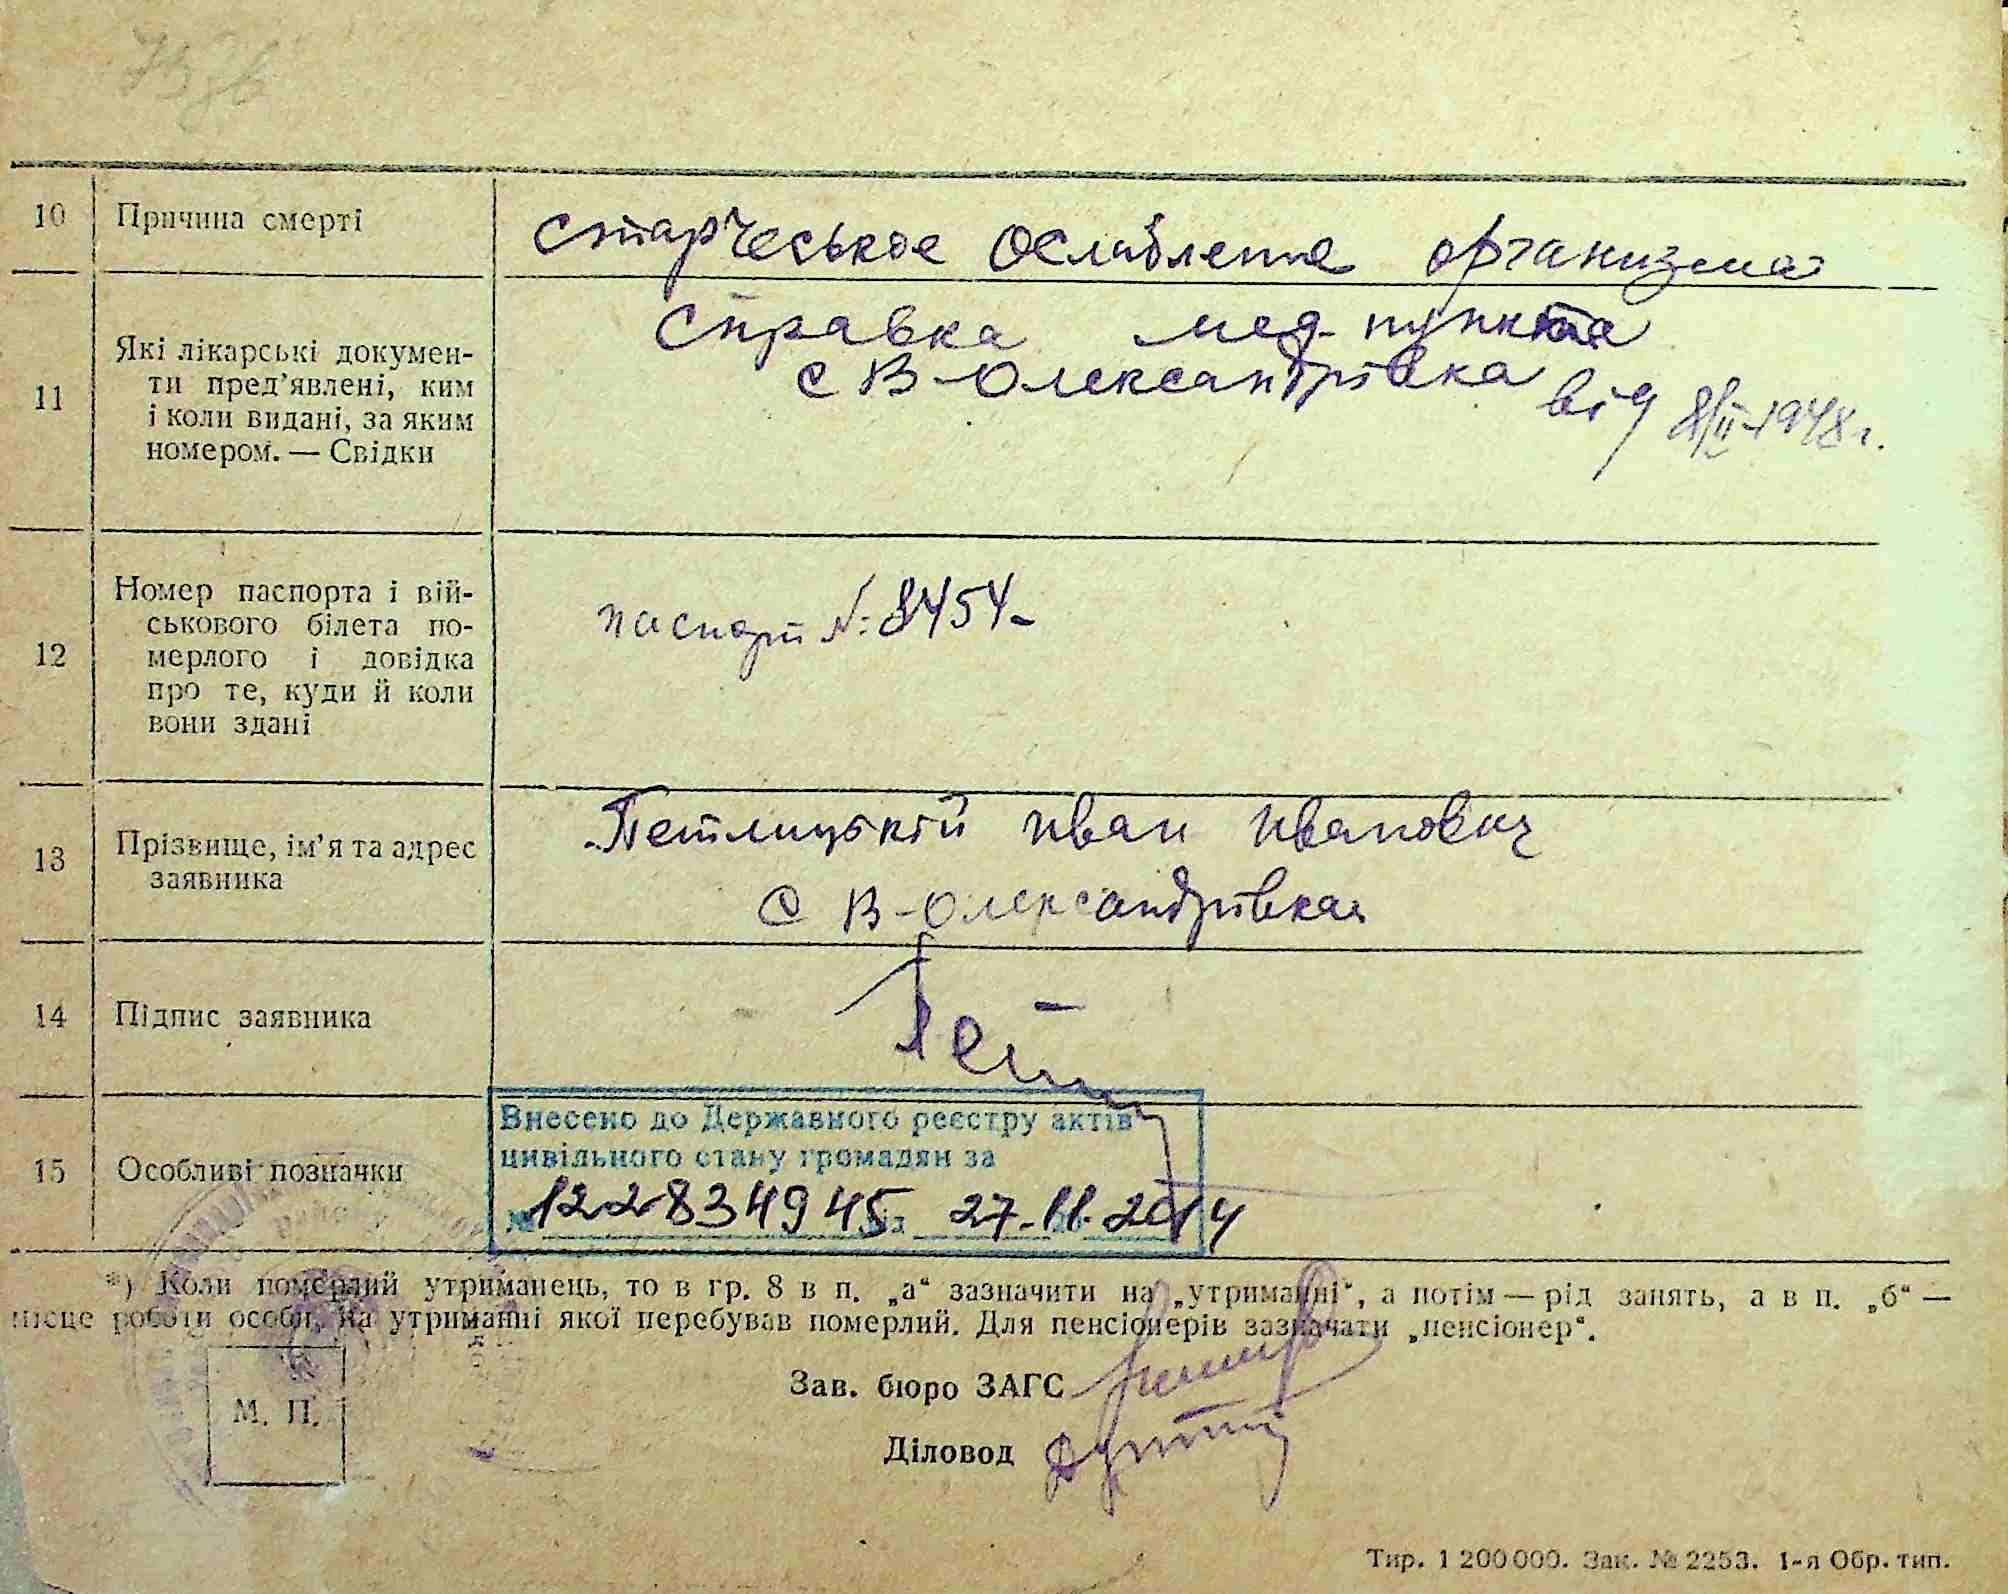 10 Причина смерті
Старческое ослабление организма
11 Які лікарські докумен-
ти пред’явлені, ким
і коли видані, за яким
номером. — Свідки
Справка мед-пункта
с В-Олександрівка від 8/II-1948 г.
12 Номер паспорта і вій-
ськового білета по-
мерлого і довідка
про те, куди й коли
вони здані
паспорт №: 8454-
13 Прізвище, ім’я та адрес
заявника
Петлицький Иван Иванович
с В-Олександрівка
14 Підпис заявника
15 Особливі позначки
Внесено до Державного реєстру актів
цивільного стану громадян за
№ 122834945 від 27.11.2014
*) Коли померлий утриманець, то в гр. 8 в п. „а“ зазначити на „утриманні“, а потім — рід занять, а в п. „б“ —
місце роботи особи, на утриманні якої перебував померлий. Для пенсіонерів зазначати „пенсіонер“.
М. П.
Зав. бюро ЗАГС
Діловод
Тир. 1 200 000. Зак. № 2253. 1-я Обр. тип.